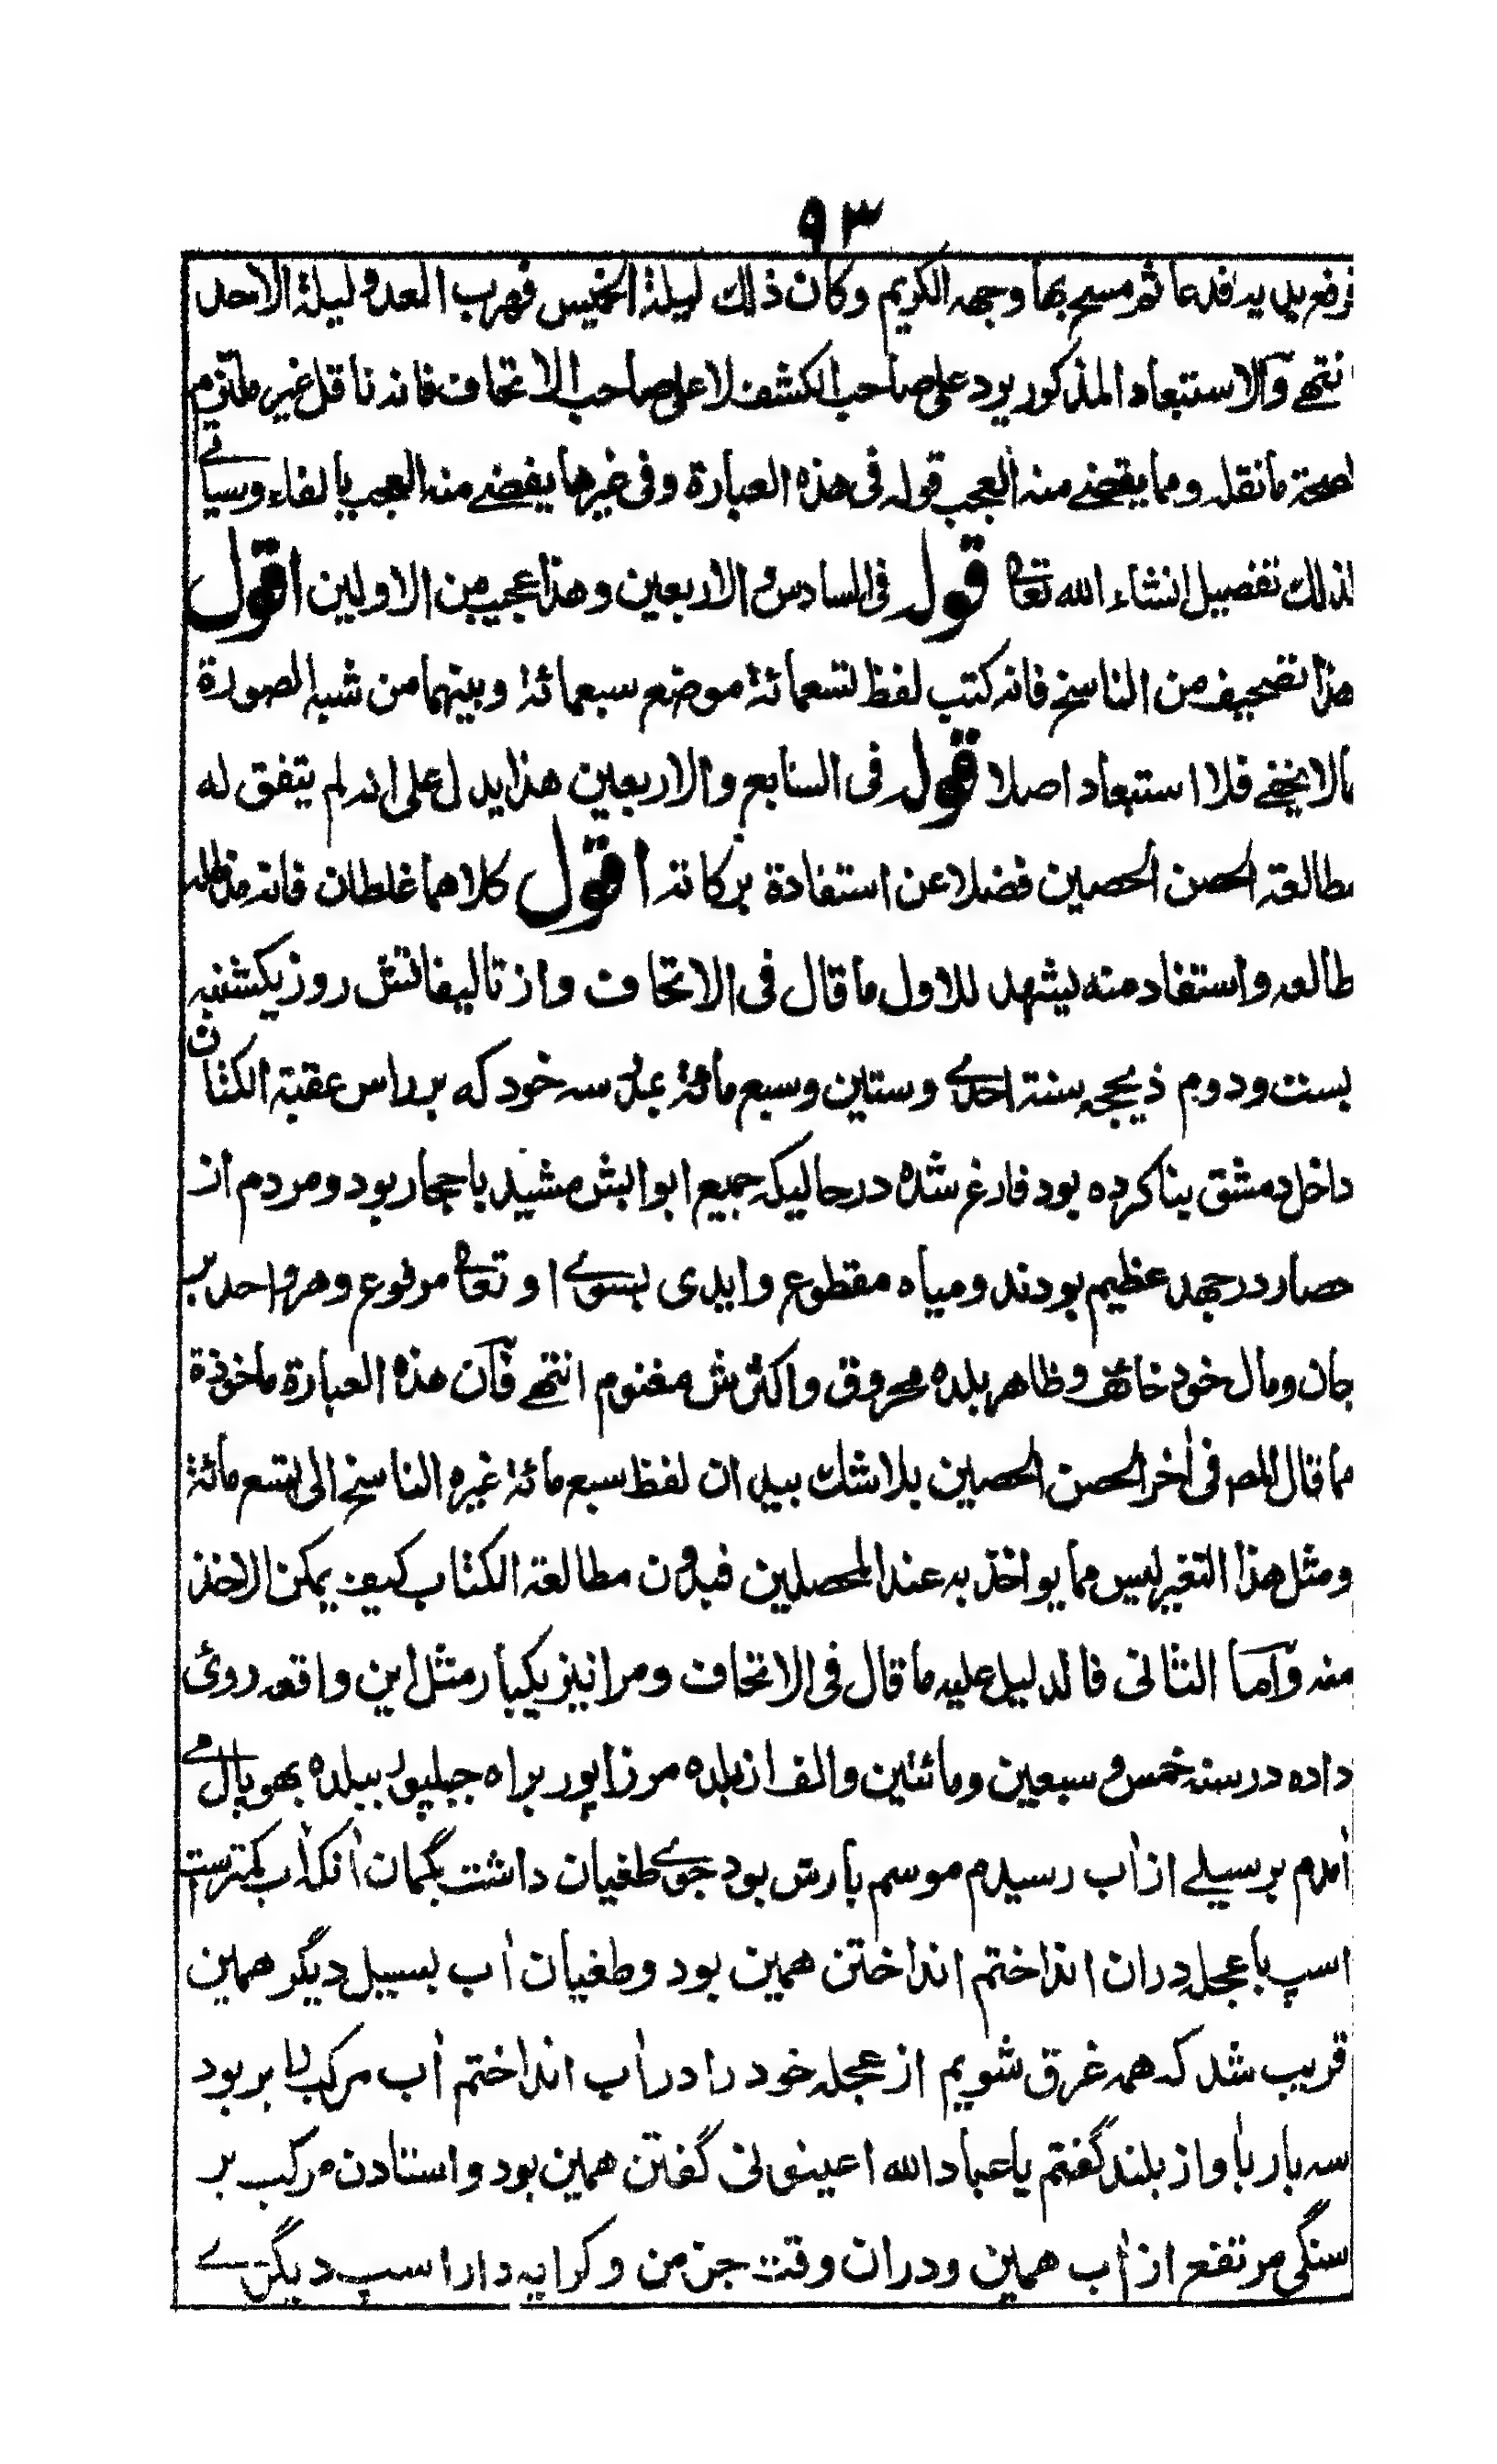 ٩٣
فرفع يديه فدعا ثم مسح بهما وجهه الكريم وكان ذلك ليلة الخميس فهرب العدو ليلة الاحد
انتهے والاستبعاد المذكور يرد على صاحب الكشف لا على صاحب الاتحاف فانه ناقل غير ملتزم
لصحة ما نقله ومما يقضے منه العجب قوله فى هذه العبارة وفى غيرها يفضے منه العجب بالفاء وسياتے
لذلك تفصيل انشاء الله تعا قوله فى السادس والاربعين وهذا عجيب من الاولين اقول
هذا تصحيف من الناسخ فانه كتب لفظ تسعمائة موضع سبعمائة وبينهما من شبه الصورة
مالا يخفے فلا استبعاد اصلا قوله فى السابع والاربعين هذا يدل على انه لم يتفق له
مطالعة الحصن الحصين فضلا عن استفادة بركاته اقول كلاهما غلطان فانه مد ظله
طالعه واستفاد منه يشهد للاول ما قال فى الاتحاف واز تاليفاتش روز يكشنبه
بست ودوم ذيحجه سنة احدے وستين وسبع مائة بمدرسه خود كه برراس عقبة الكتان
داخل دمشق بنا كرده بود فارغ شده درحاليكه جميع ابوابش مشيد باحجار بود ومردم از
حصار درجهد عظيم بودند ومياه مقطوع وايدى بسوے او تعا مرفوع وهر واحد بر
جان ومال خود خائف وظاهر بلده محروق واكثرش مغنوم انتهے فان هذه العبارة ماخوذة
مما قال المص فى اٰخر الحصن الحصين بلاشك بيد ان لفظ سبع مائة غيره الناسخ الى تسع مائة
ومثل هذا التغير ليس مما يواخذ به عند المحصلين فبدون مطالعة الكتاب كيف يمكن الاخذ
منه واما الثانى فالدليل عليه ما قال فى الاتحاف ومرا نيز يكبار مثل اين واقعه روئ
داده درسنه خمس و سبعين ومائتين والف از بلده مرزاپور براه جبلپور ببلده بهوپال مے
اٰمدم برسيلے از اٰب رسيدم موسم بارش بود جوے طغيان داشت بگمان اٰنكه اٰب كمترست
اسپ باعجله دران انداختم انداختن همين بود وطغيان اٰب بسيل ديگر همين
قريب شد كه همه غرق شويم از عجله خود را دراٰب انداختم اٰب مركب را بربود
سه بار باٰواز بلند گفتم ياعباد الله اعينونى گفتن همين بود واستادن مركب بر
سنگى مرتفع از اٰب همين ودران وقت جز من وكرايه دار اسپ ديگرے